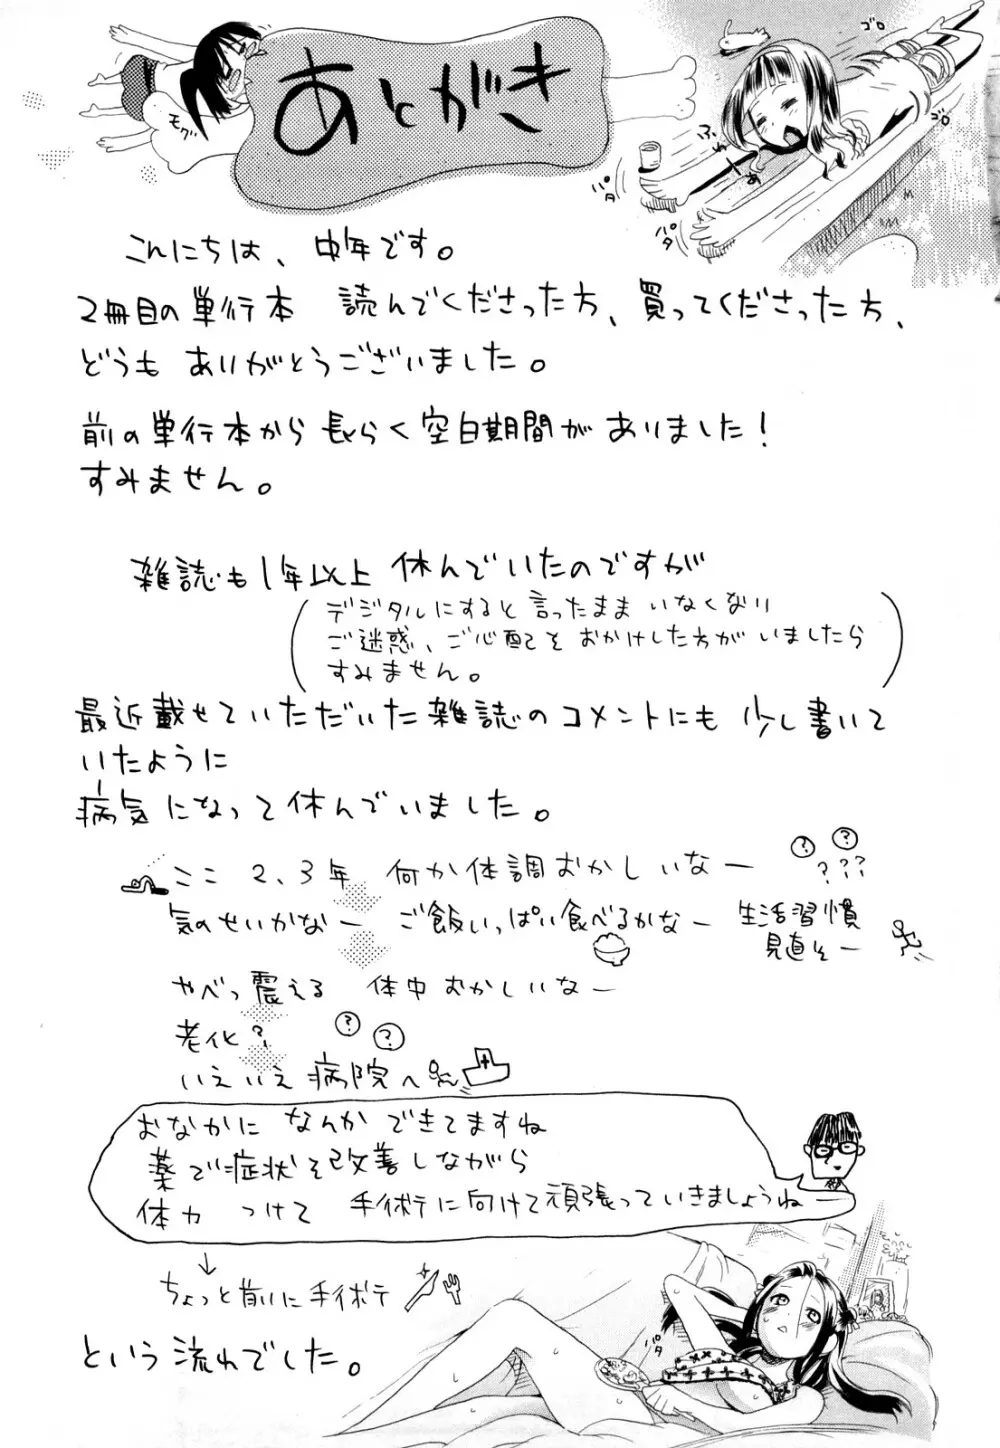 あとがき
モグ
ふぁ
ゴロ
ゴロ
パタ
パタ
こんにちは、中年です。
2冊目の単行本 読んでくださった方、買ってくださった方、
どうも ありがとうございました。
前の単行本から 長らく空白期間が ありました!
すみません。
雑誌も1年以上 休んでいたのですが
(デジタルにすると言ったまま いなくなり
ご迷惑、ご心配を おかけした方が いましたら
すみません。)
最近載せていただいた雑誌のコメントにも 少し書いて
いたように
病気になって休んでいました。
ここ 2、3年 何か体調おかしいなー ????
気のせいかなー ご飯いっぱい食べるかなー 生活習慣
見直そー
やべっ震える 体中おかしいなー
老化? ??
いえいえ 病院へ
おなかに なんか できてますね
薬で症状を改善しながら
体力 つけて 手術に向けて頑張っていきましょうね
↓
ちょっと前に手術
パタ
という流れでした。